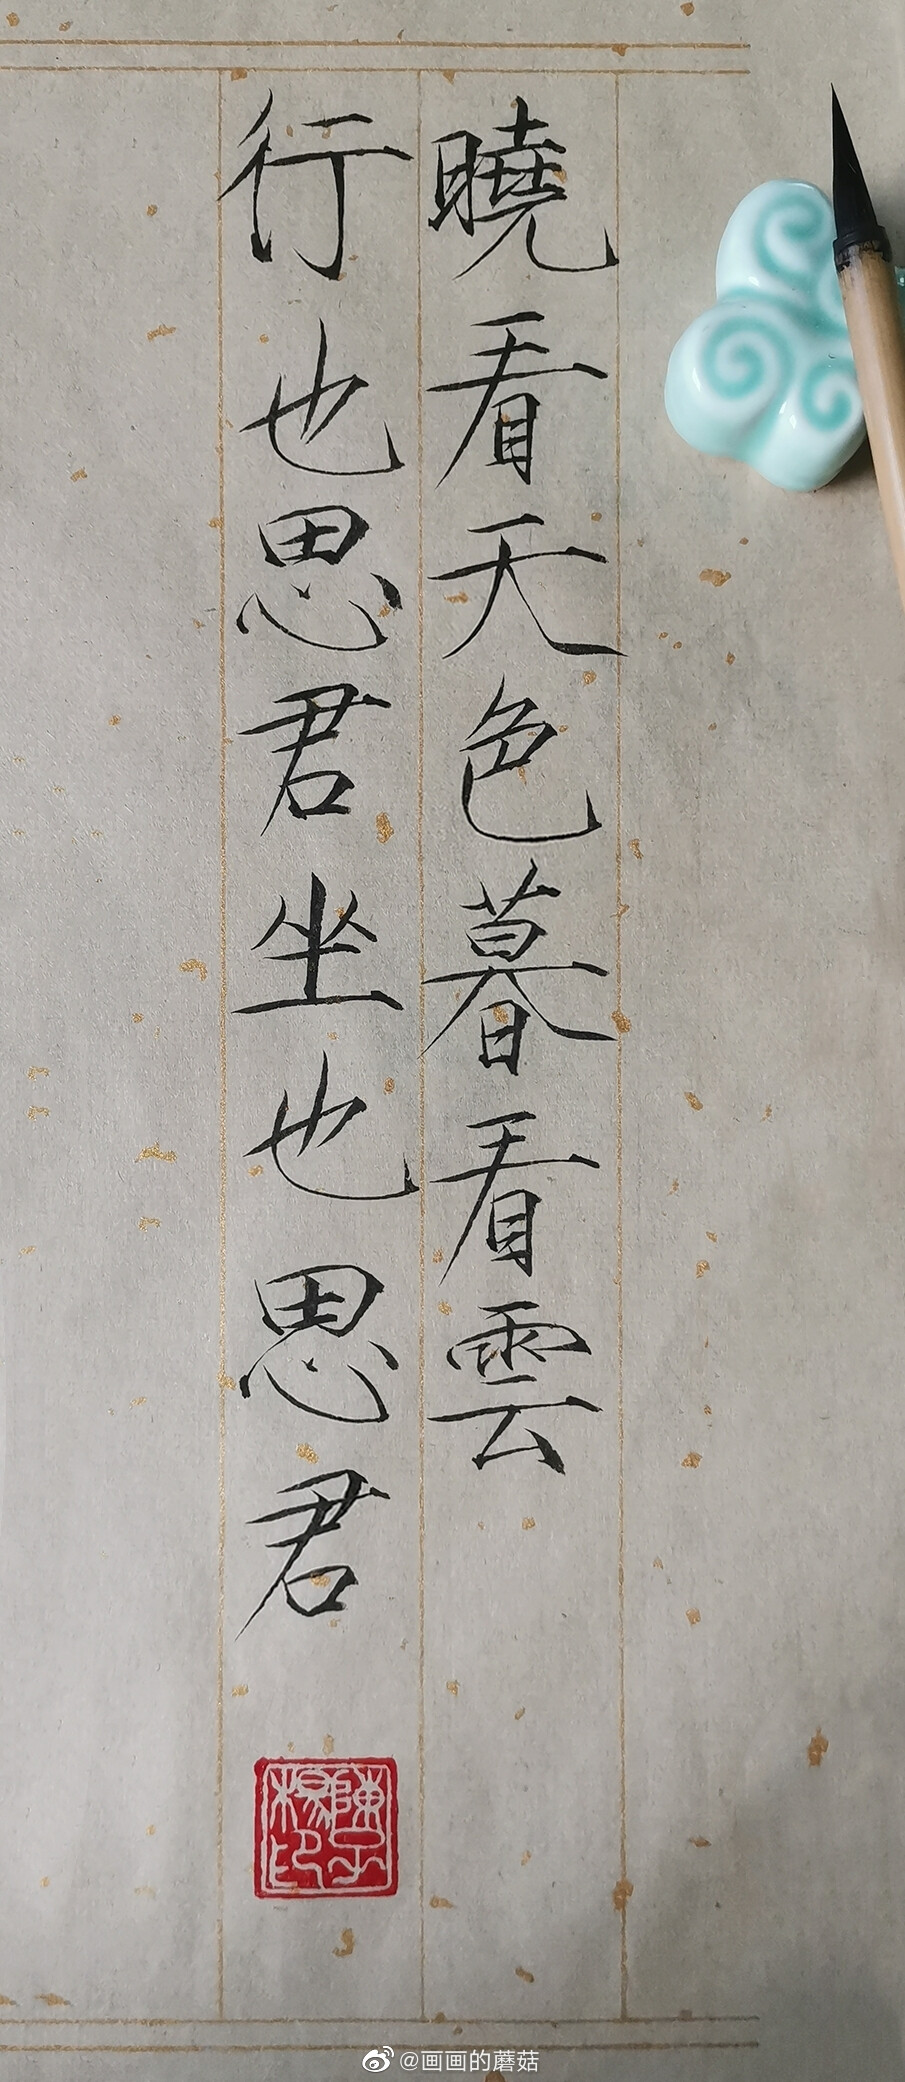 曉看天色暮看雲
行也思君坐也思君
陳子楊印
@画画的蘑菇